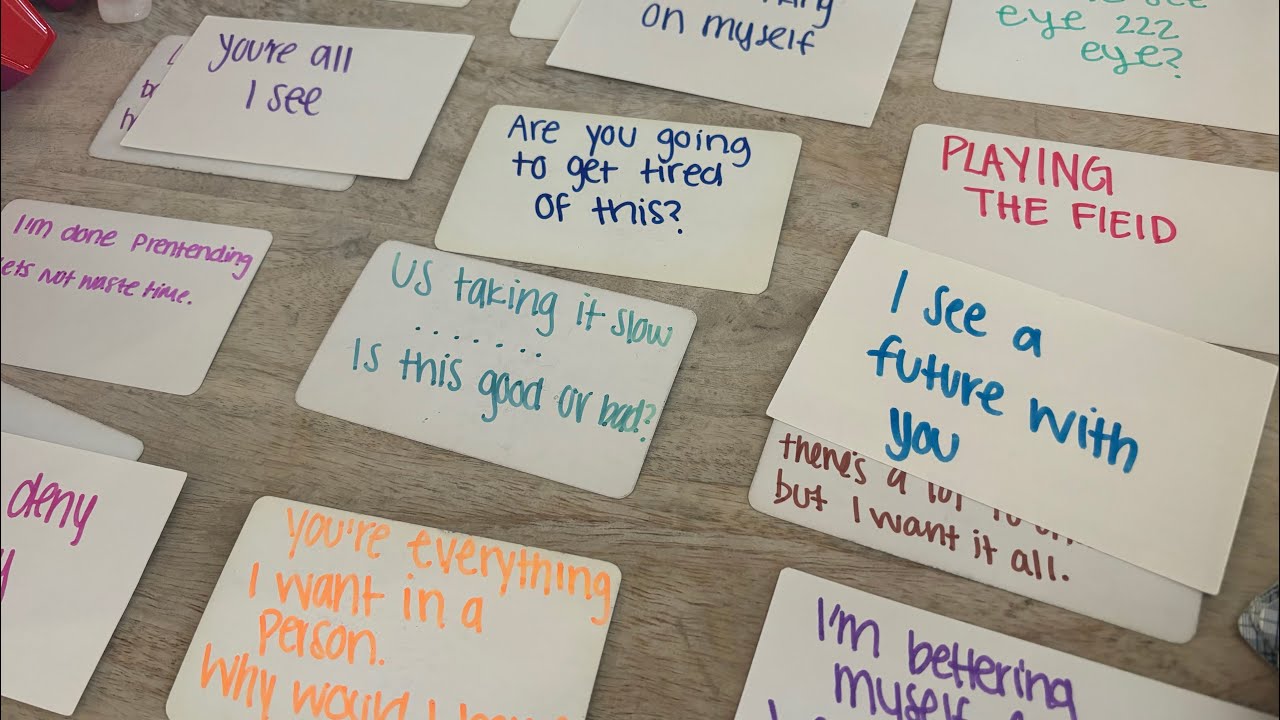 you're all
I see
on myself
see
eye 222
eye?
Are you going
to get tired
of this?
PLAYING
THE FIElD
I'm done Prentending
lets not waste time.
US taking it slow
.......
Is this good or bad?
I see a
future with
you
there's a lot to
but I want it all.
deny
you're everything
I want in a
Person.
Why would I
I'm bettering
myself